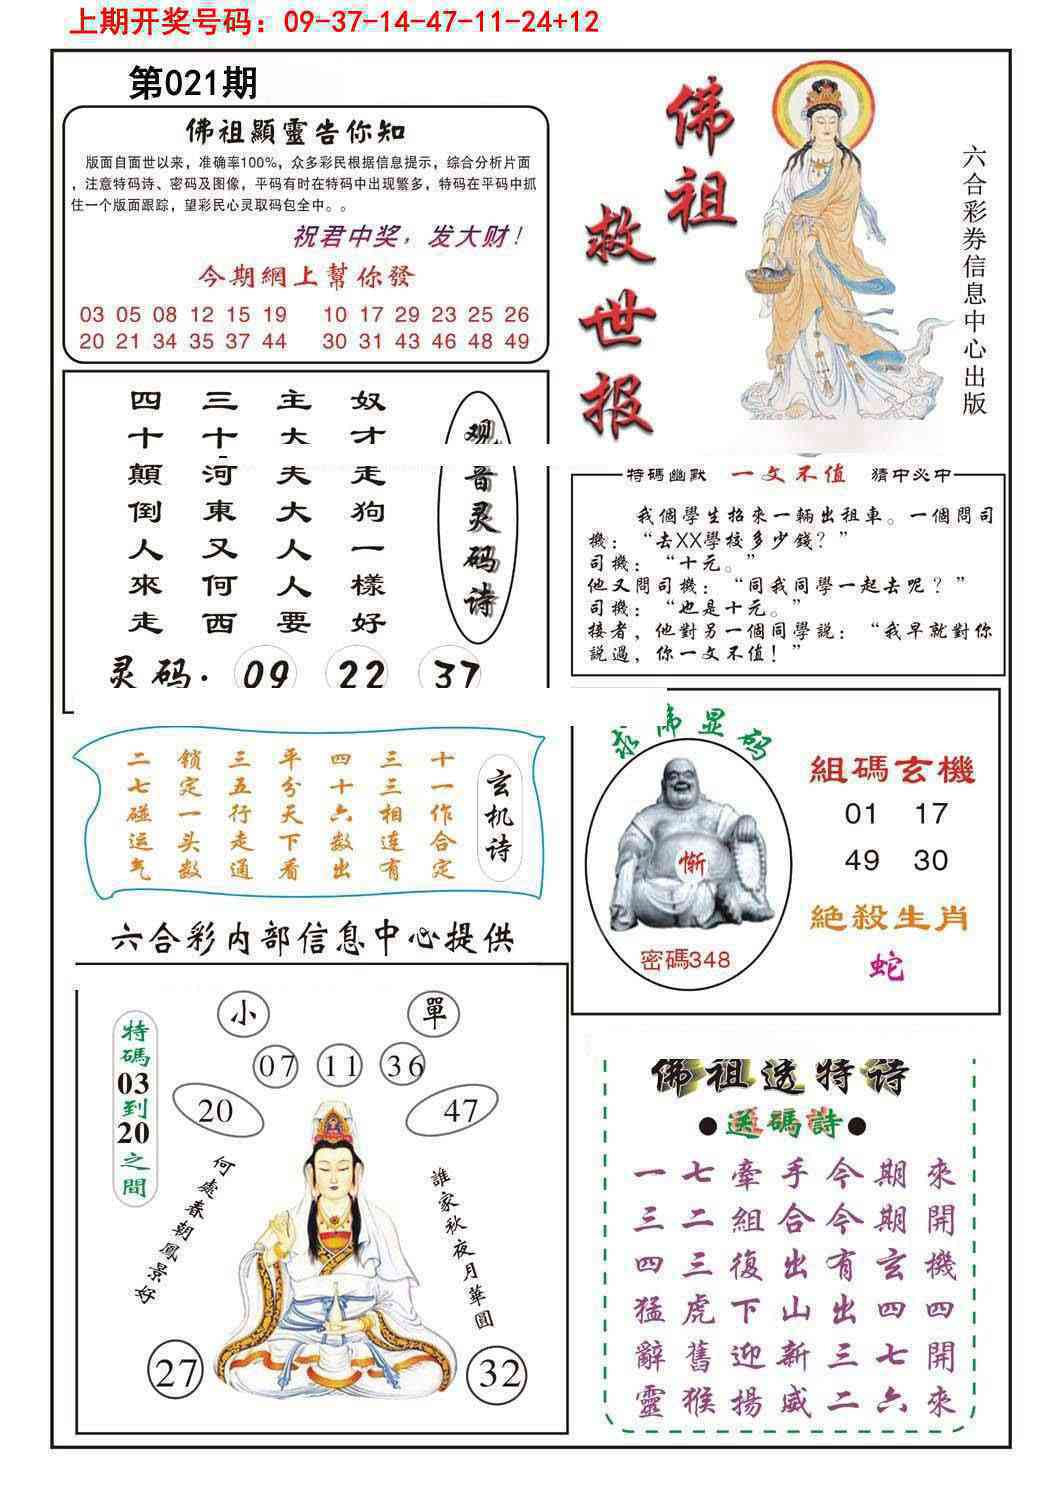 上期开奖号码：09-37-14-47-11-24+12
第021期
佛祖顯靈告你知
版面自面世以来，准确率100%，众多彩民根据信息提示，综合分析片面
，注意特码诗、密码及图像，平码有时在特码中出现繁多，特码在平码中抓
住一个版面跟踪，望彩民心灵取码包全中。。
祝君中奖，发大财！
今期網上幫你發
03 05 08 12 15 19 10 17 29 23 25 26
20 21 34 35 37 44 30 31 43 46 48 49
佛祖
救世报
六合彩券信息中心出版
观音灵码诗
奴才走狗一樣好
主大夫大人人要
三十河東又何西
四十顛倒人來走
灵码. 09 22 37
特碼幽默 一文不值 猜中必中
我個學生招來一輛出租車。一個問司
機：“去XX學校多少錢？”
司機：“十元。”
他又問司機：“同我同學一起去呢？”
司機：“也是十元。”
接者，他對另一個同學説：“我早就對你
説過，你一文不值！”
玄机诗
十一作合定
三三相连有
四十六数出
平分天下看
三五行走通
锁定一头数
二七碰运气
显码
惭
密碼348
組碼玄機
01 17
49 30
絕殺生肖
蛇
六合彩内部信息中心提供
特碼03到20之間
小 單
07 11 36
20 47
何處春朝鳳景好
誰家秋夜月華圓
27 32
佛祖透特诗
●送碼詩●
一七牽手今期來
三二組合今期開
四三復出有玄機
猛虎下山出四四
辭舊迎新三七開
靈猴揚威二六來